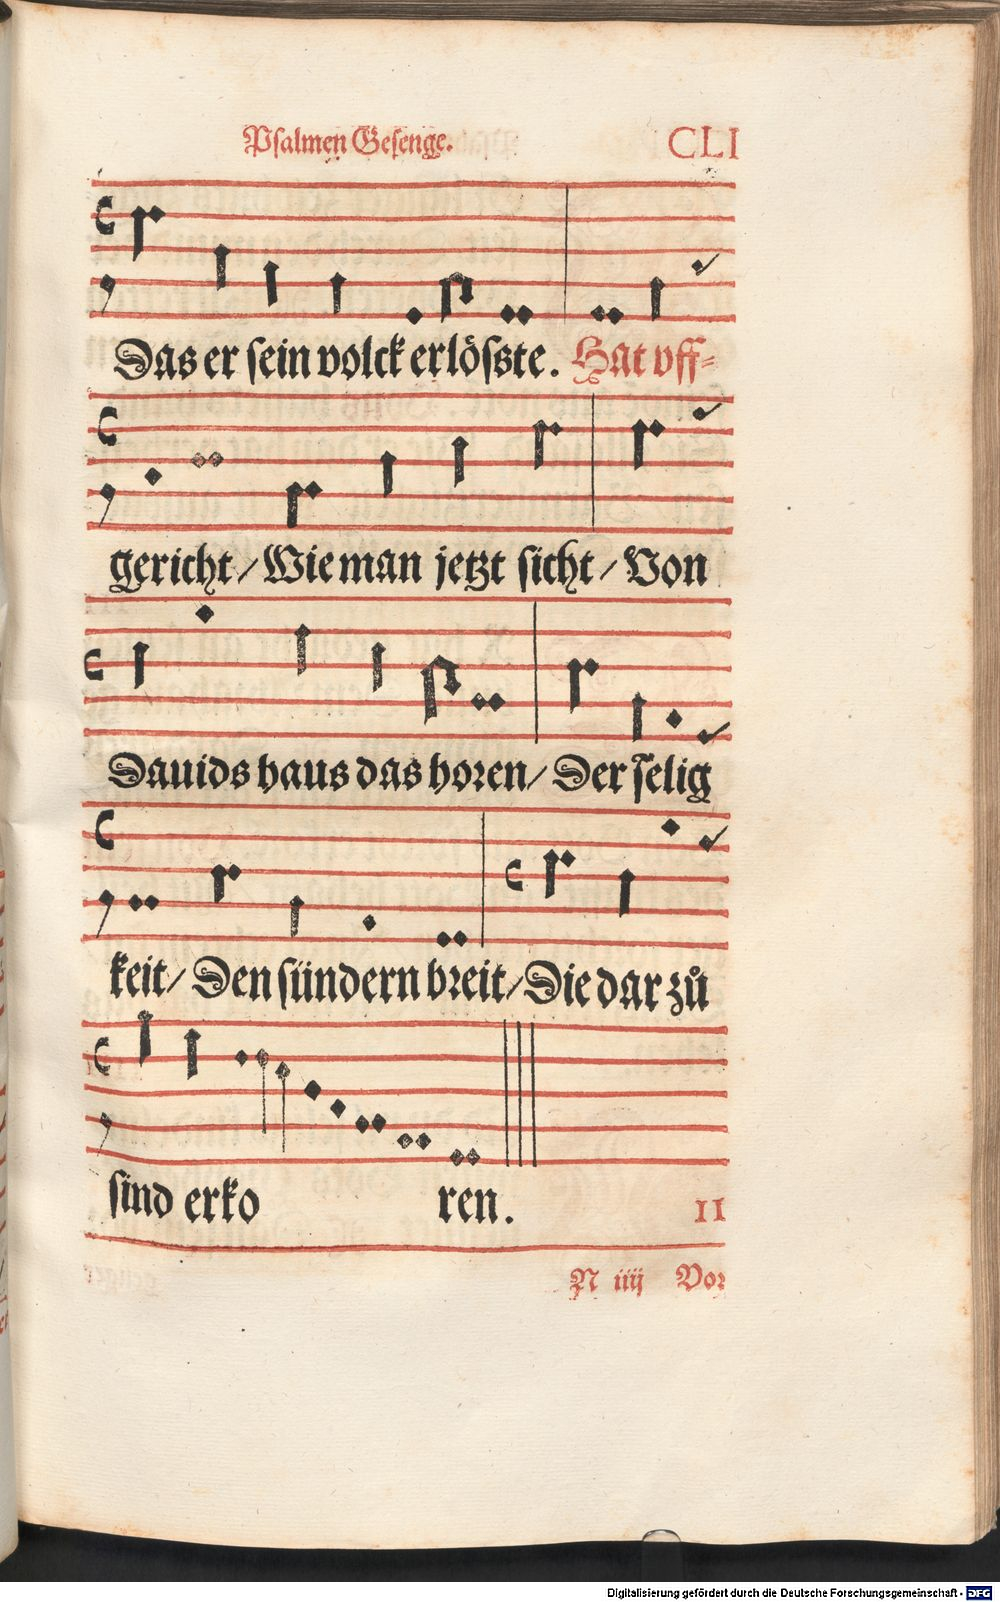 Psalmen Gesenge. CLI
Das er sein volck erlöszte. Hat vff-
gericht / Wie man jetzt sicht / Von
Dauids haus das horen / Der selig
keit / Den sündern breit / Die dar zů
sind erko ren.
II
N iiij Vor
Digitalisierung gefördert durch die Deutsche Forschungsgemeinschaft - DFG